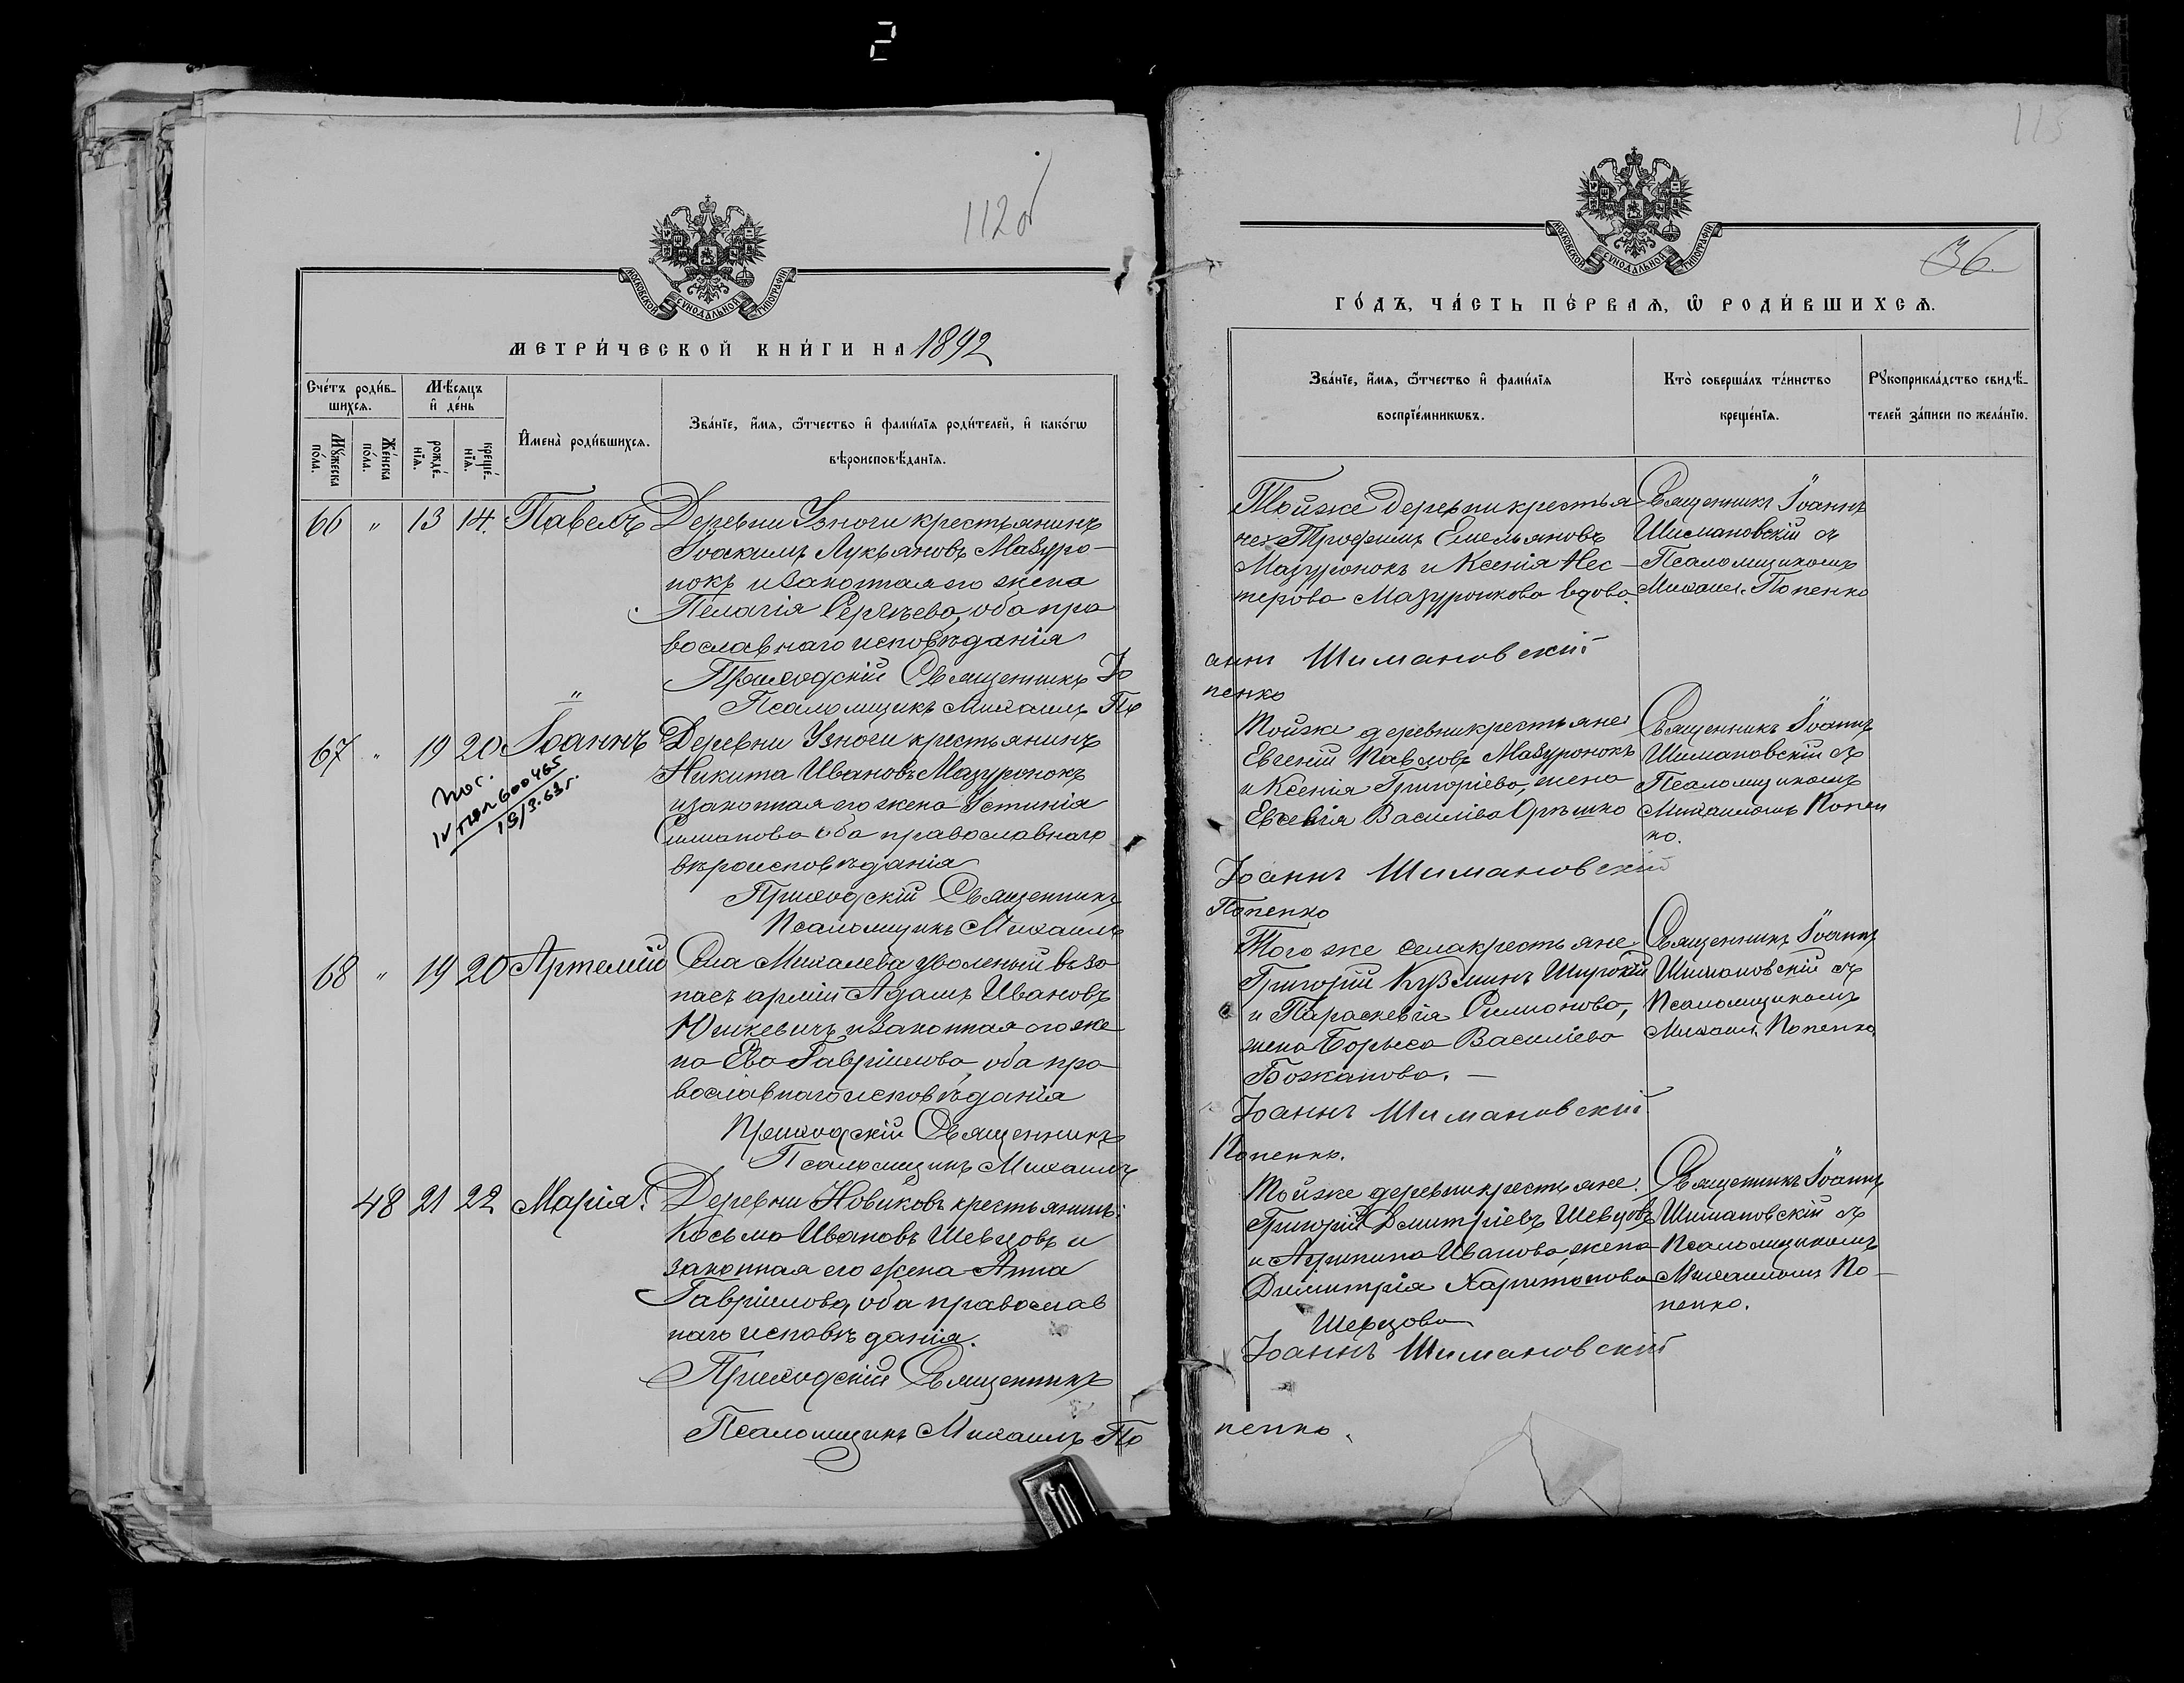 2
112об
МОСКОВСКОЙ СѴНОДАЛЬНОЙ ТИПОГРАФІИ
МЕТРИ́ЧЕСКОЙ КНИ́ГИ НА 1892
Сче́тъ роди́в-
шихсѧ.
Мѣ́сѧцъ
и҆ де́нь
Мꙋ́жеска
по́ла.
Же́нска
по́ла.
рожде́-
нїѧ.
креще́-
нїѧ.
И҆мена̀ роди́вшихсѧ.
Зва́нїе, и҆́мѧ, ѻ҆́тчество и҆ фами́лїѧ роди́телей, и҆ како́гѡ
вѣроисповѣ́данїѧ.
66 " 13 14. Павелъ
Деревни Узноги крестьянинъ
Іоакимъ Лукьяновъ Мазуро-
нокъ и законная его жена
Пелагія Сергѣева, оба пра
вославнаго исповѣданія
Приходскій Священникъ Іо
Псаломщикъ Михаилъ По
67 " 19 20 Іоаннъ
пог.
600465
15/3.63г.
Деревни Узноги крестьянинъ
Никита Ивановъ Мазуронокъ
и законная его жена Устинія
Симанова оба православнаго
вѣроисповѣданія
Приходскій Священникъ
Псаломщикъ Михаилъ
68 " 19 20 Артемій
Села Михалева уволеный въ за
пасъ арміи Адамъ Ивановъ
Юшкевичъ и законная его же
на Ева Гавріилова, оба пра
вославнаго исповѣданія
Приходскій Священникъ
Псаломщикъ Михаилъ
48 21 22 Марія.
Деревни Новиковъ крестьянинъ
Косьма Ивановъ Шевцовъ и
законная его жена Анна
Гавріилова, оба православ
наго исповѣданія.
Приходскій Священникъ
Псаломщикъ Михаилъ По
113
36
МОСКОВСКОЙ СѴНОДАЛЬНОЙ ТИПОГРАФІИ
ГО́ДЪ, ЧА́СТЬ ПЕ́РВАѦ, Ѡ҆ РОДИ́ВШИХСѦ.
Зва́нїе, и҆́мѧ, ѻ҆́тчество и҆ фами́лїѧ
воспрїе́мникѡвъ.
Кто̀ соверша́лъ та́инство
креще́нїѧ.
Рꙋкоприкла́дство свидѣ́-
телей за́писи по жела́нїю.
Тойже деревни крестья
не: Трофимъ Емельяновъ
Мазуронокъ и Ксенія Нес-
терова Мазуронкова вдова.
Священникъ Іоаннъ
Шимановскій съ
Псаломщикомъ
Михаил. Попенко
аннъ Шимановскій
пенко
Тойже деревни крестьяне
Евгеній Павловъ Мазуронокъ
и Ксенія Григоріева, жена
Евсевія Василіева Орѣшко
Священникъ Іоаннъ
Шимановскій съ
Псаломщикомъ
Михаиломъ Попен
ко.
Іоаннъ Шимановскій
Попенко
Того же села крестьяне
Григорій Кузминъ Широкій
и Параскевія Симонова,
жена Бориса Василіева
Божанова. —
Священникъ Іоаннъ
Шимановскій съ
Псаломщикомъ
Михаил. Попенко.
Іоаннъ Шимановскій
Попенко.
Тойже деревни крестьяне.
Григорій Дмитріевъ Шевцовъ
и Агрипина Иванова, жена
Димитрія Харитонова
Шевцова
Священникъ Іоаннъ
Шимановскій съ
Псаломщикомъ
Михаиломъ По-
пенко.
Іоаннъ Шимановскій
пенко.